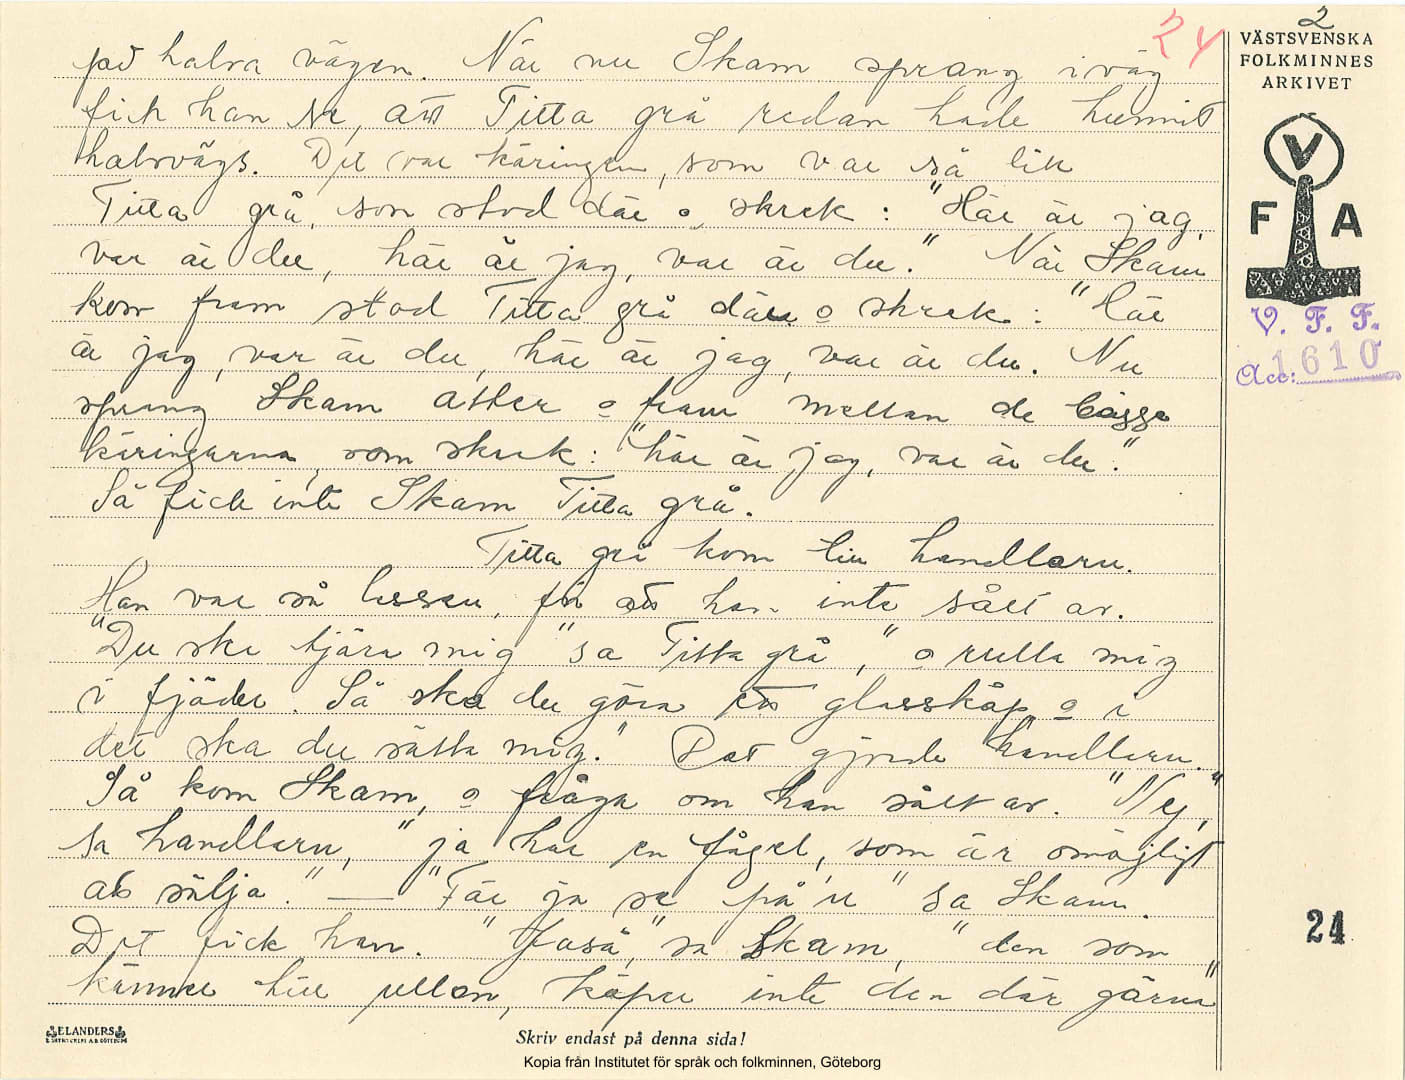 2
24
VÄSTSVENSKA
FOLKMINNES
ARKIVET
V
F A
V. F. F.
Acc: 1610
på halva vägen. När nu Skam sprang iväg
fick han se, att Titta grå redan hade hunnit
halvvägs. Det var käringen, som var så lik
Titta grå, som stod där o skrek: "Här är jag,
var är du, här är jag, var är du." När Skam
kom fram stod Titta grå där o skrek: "Här
är jag, var är du, här är jag, var är du. Nu
sprang Skam åtter o fram mellan de bägge
käringarna, som skrek: "här är jag, var är du."
Så fick inte Skam Titta grå.
Titta grå kom till handllarn.
Han var så lessen, för att han inte sålt av.
"Du ska tjära mig" sa Titta grå, "o rulla mig
i fjäder. Så ska du göra ett glasskåp o i
det ska du sätta mig." Det gjorde handllarn.
Så kom Skam, o fråga om han sålt av. "Nej,"
sa handllarn, "ja har en fågel, som är omöjligt
att sälja." — "Får ja se på'n" sa Skam.
Det fick han. "Jasså," sa Skam, "den som
känner till ullen, köper inte den där gärna"
24
ELANDERS
Skriv endast på denna sida!
Kopia från Institutet för språk och folkminnen, Göteborg